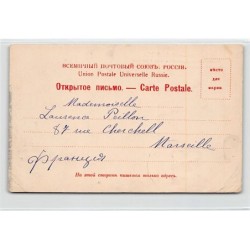 ВСЕМІРНЫЙ ПОЧТОВЫЙ СОЮЗЪ. РОССІЯ.
Union Postale Universelle Russie.
Открытое письмо. — Carte Postale.
Mademoiselle
Laurence Peillon
87 rue Cherchell
Marseille
Франція
На этой сторонѣ пишется только адресъ.